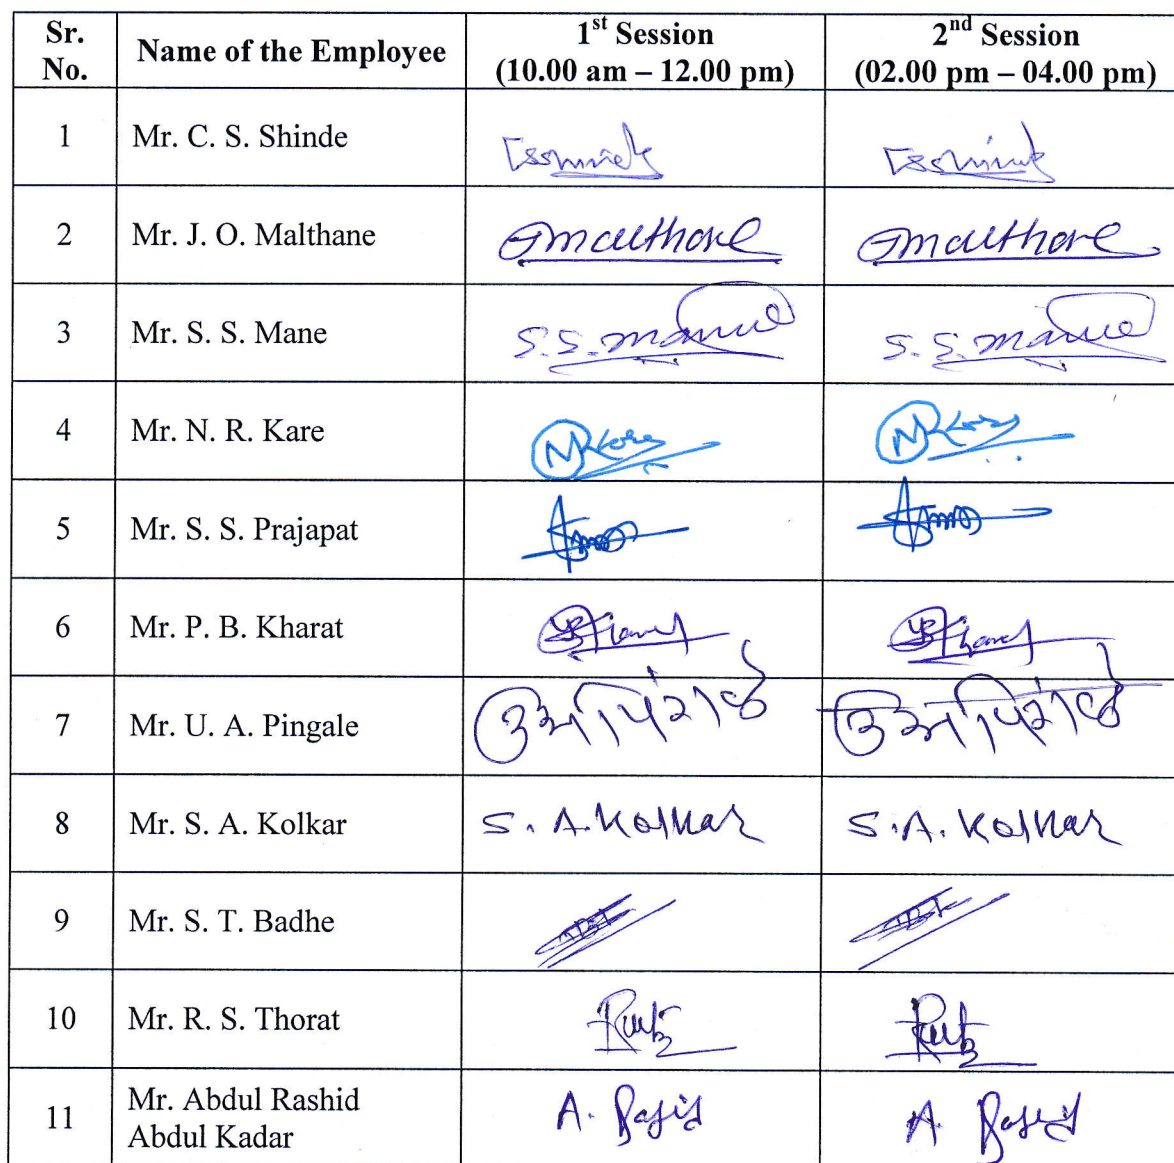 Sr. No.
Name of the Employee
1st Session
(10.00 am – 12.00 pm)
2nd Session
(02.00 pm – 04.00 pm)
1 Mr. C. S. Shinde
2 Mr. J. O. Malthane
3 Mr. S. S. Mane S.S. Mane S.S. Mane
4 Mr. N. R. Kare
5 Mr. S. S. Prajapat
6 Mr. P. B. Kharat
7 Mr. U. A. Pingale
8 Mr. S. A. Kolkar S. A. Kolkar S.A. Kolkar
9 Mr. S. T. Badhe
10 Mr. R. S. Thorat
11 Mr. Abdul Rashid
Abdul Kadar